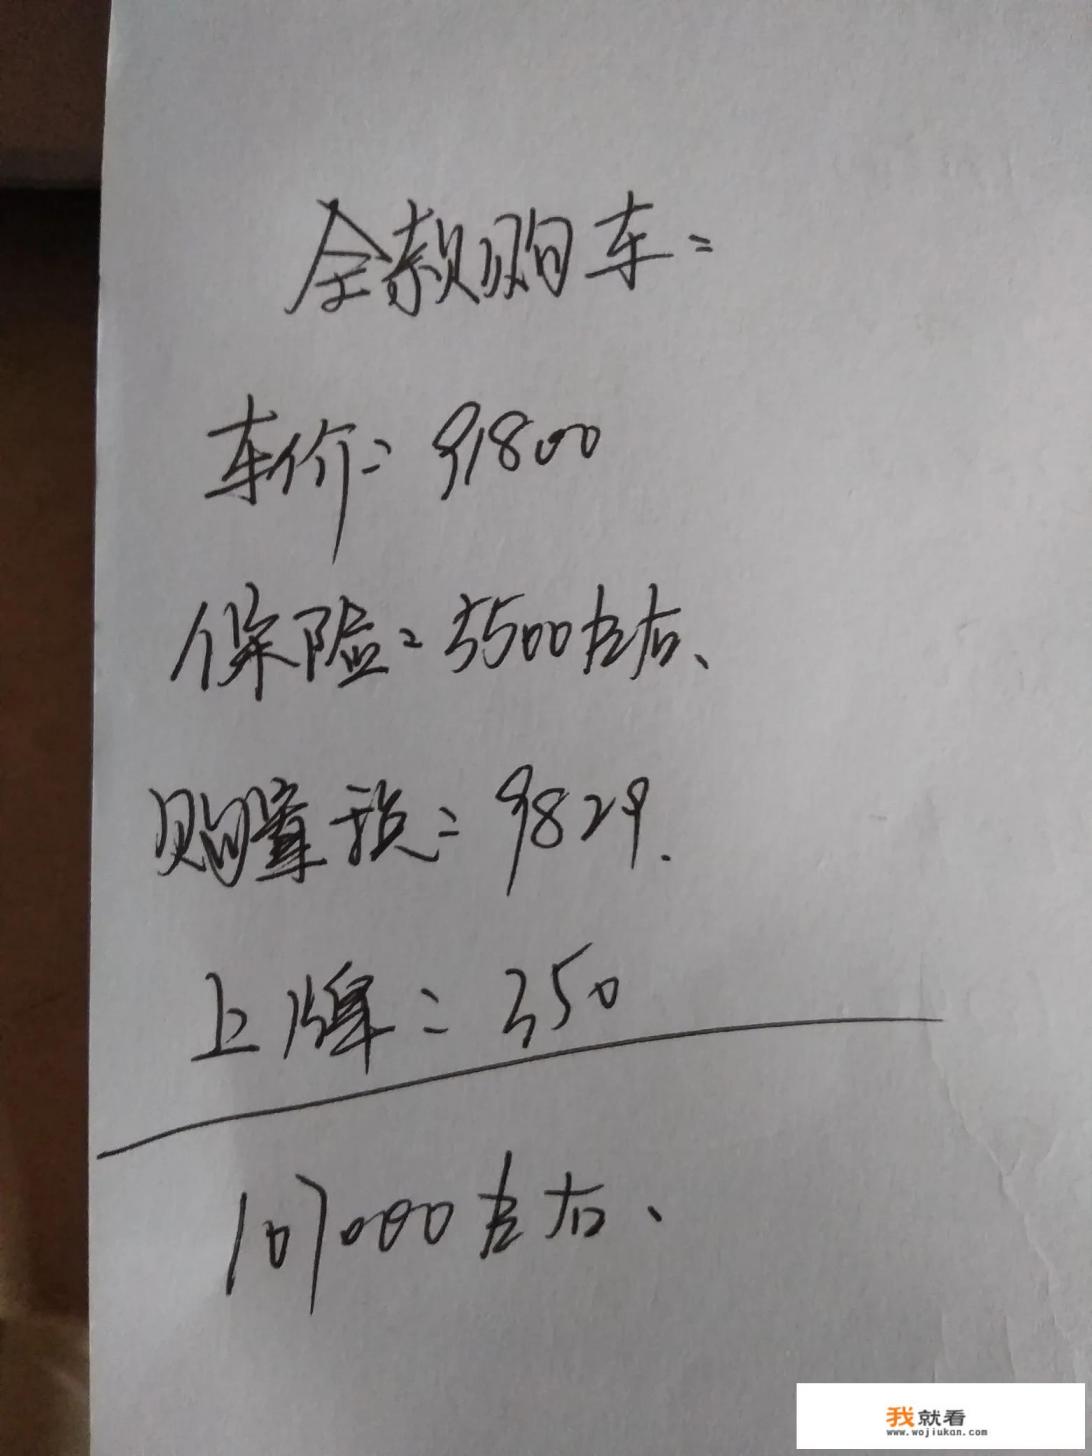 全款购车：
车价：91800
保险：5500左右、
购置税：9829.
上牌：350
107000左右、
我就看
www.wojiukan.com